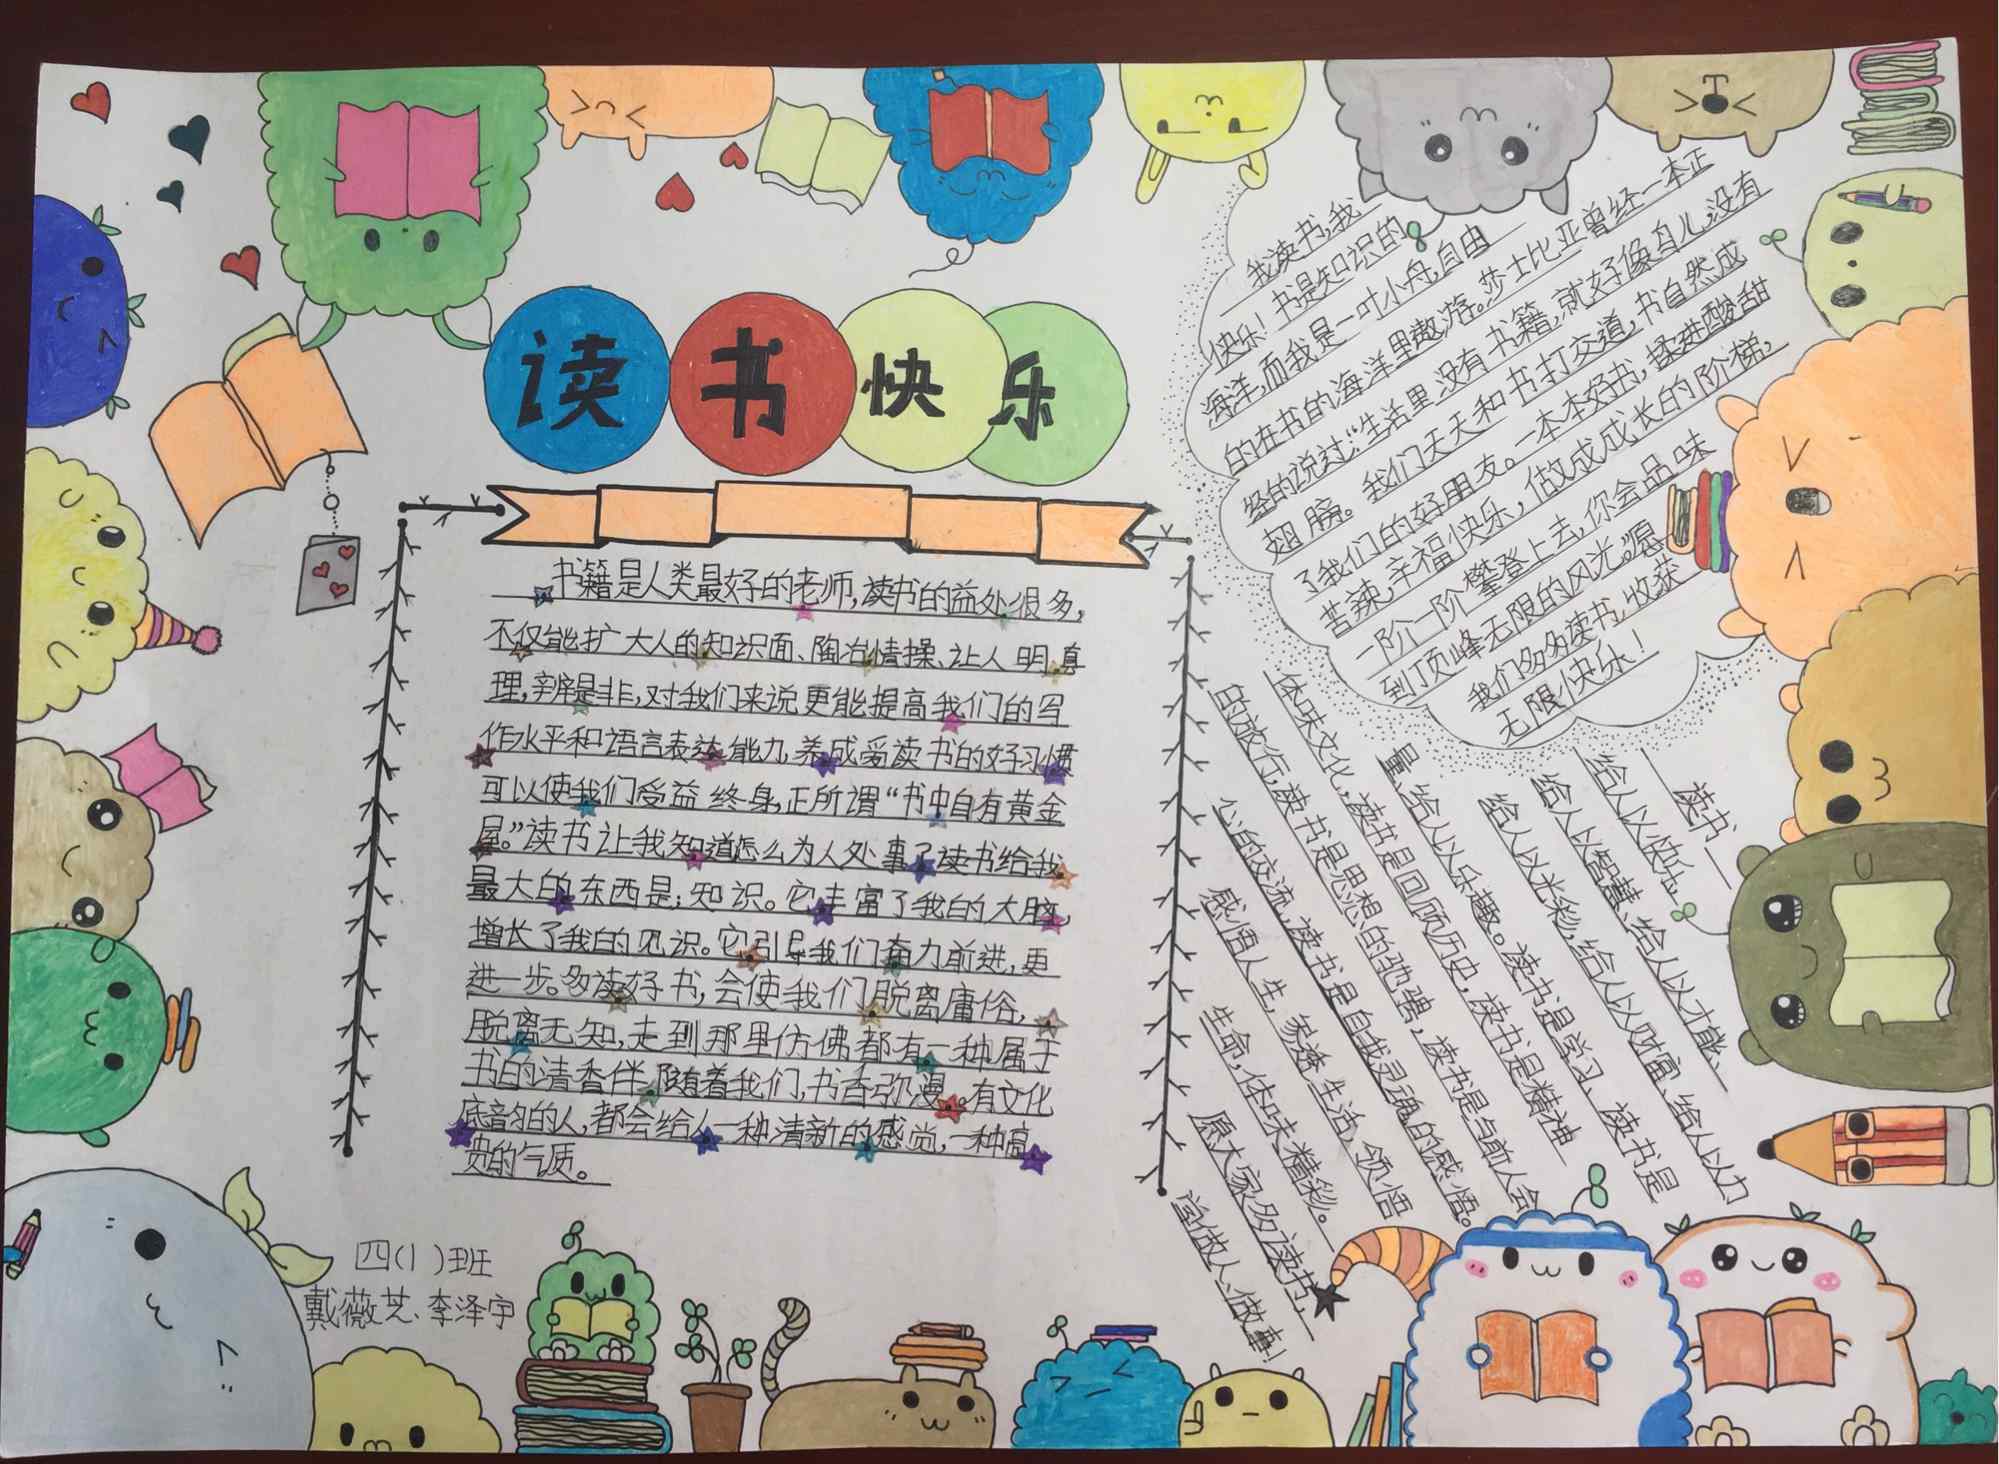 读书快乐
书籍是人类最好的老师,读书的益处很多,
不仅能扩大人的知识面、陶冶情操、让人明真
理,辨是非,对我们来说更能提高我们的写
作水平和语言表达能力,养成爱读书的好习惯
可以使我们受益终身,正所谓“书中自有黄金
屋。”读书让我知道怎么为人处事了读书给我
最大的东西是:知识。它丰富了我的大脑,
增长了我的见识。它引导我们奋力前进,更
进一步。多读好书,会使我们脱离庸俗,
脱离无知,走到那里仿佛都有一种属于
书的清香伴随着我们,书香弥漫。有文化
底韵的人,都会给人一种清新的感觉,一种高
贵的气质。
我读书,我
快乐!书是知识的
海洋,而我是一叶小舟,自由
的在书的海洋里遨游。莎士比亚曾经一本正
经的说过:“生活里没有书籍,就好像鸟儿没有
翅膀。我们天天和书打交道,书自然成
了我们的好朋友。一本本好书,揉进酸甜
苦辣,幸福快乐,做成成长的阶梯,
一阶一阶攀登上去,你会品味
到顶峰无限的风光。”愿
我们多多读书,收获
无限快乐!
读书
给人以快乐、
给人以智慧、给人以才能、
给人以光彩,给人以财富、给人以力
量,给人以乐趣。读书是学习、读书是
体味文化,读书是回顾历史,读书是精神
的放行,读书是思想的驰骋,读书是与前人会
心的交流,读书是自我灵魂的感悟。
感悟人生,穿透生活、领悟
生命,体味精彩。
愿大家多读书,
学做人、做事!
四(1)班
戴薇芝、李泽宇